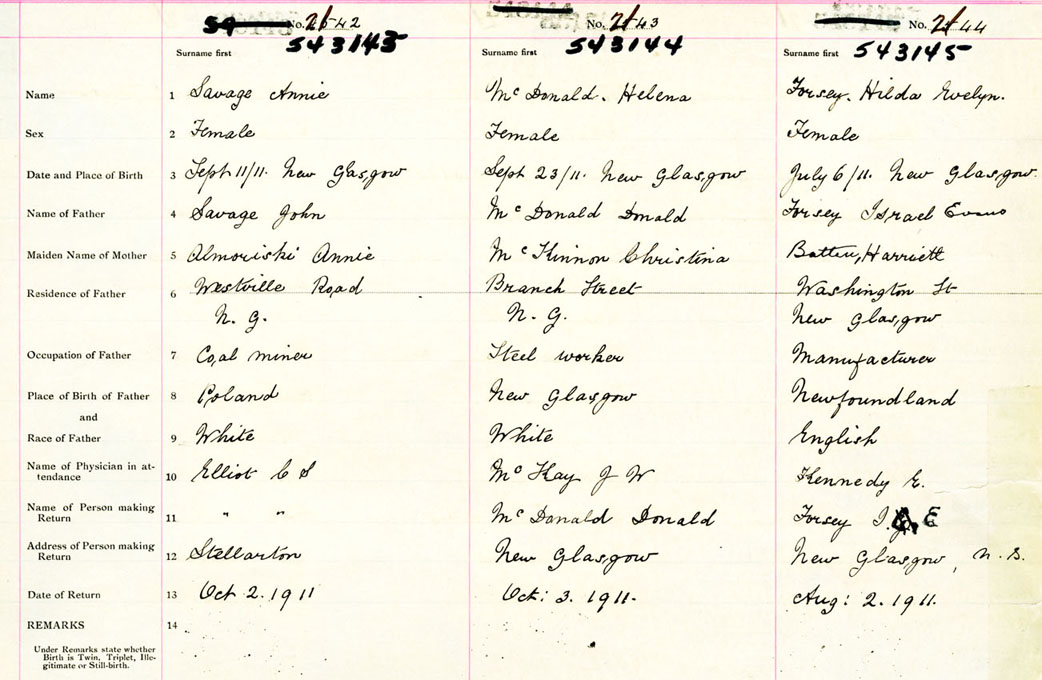 No. 2542
543143
Surname first
No. 2543
543144
Surname first
No. 2544
543145
Surname first
Name 1 Savage Annie
McDonald. Helena
Forsey. Hilda Evelyn.
Sex 2 Female
Female
Female
Date and Place of Birth 3 Sept 11/11. New Glasgow
Sept 23/11. New Glasgow
July 6/11. New Glasgow.
Name of Father 4 Savage John
McDonald Donald
Forsey Israel Evans
Maiden Name of Mother 5 Almoriski Annie
McKinnon Christina
Batten, Harriett
Residence of Father 6 Westville Road
N. G.
Branch Street
N. G.
Washington St
New Glasgow
Occupation of Father 7 Coal miner
Steel worker
Manufacturer
Place of Birth of Father 8 Poland
New Glasgow
Newfoundland
and
Race of Father 9 White
White
English
Name of Physician in at-
tendance 10 Elliot C S
McKay J W
Kennedy E.
Name of Person making
Return 11 " "
McDonald Donald
Forsey I. E
Address of Person making
Return 12 Stellarton
New Glasgow
New Glasgow, N. S.
Date of Return 13 Oct 2. 1911
Oct: 3. 1911.
Aug: 2. 1911.
REMARKS 14
Under Remarks state whether
Birth is Twin, Triplet, Ille-
gitimate or Still-birth.